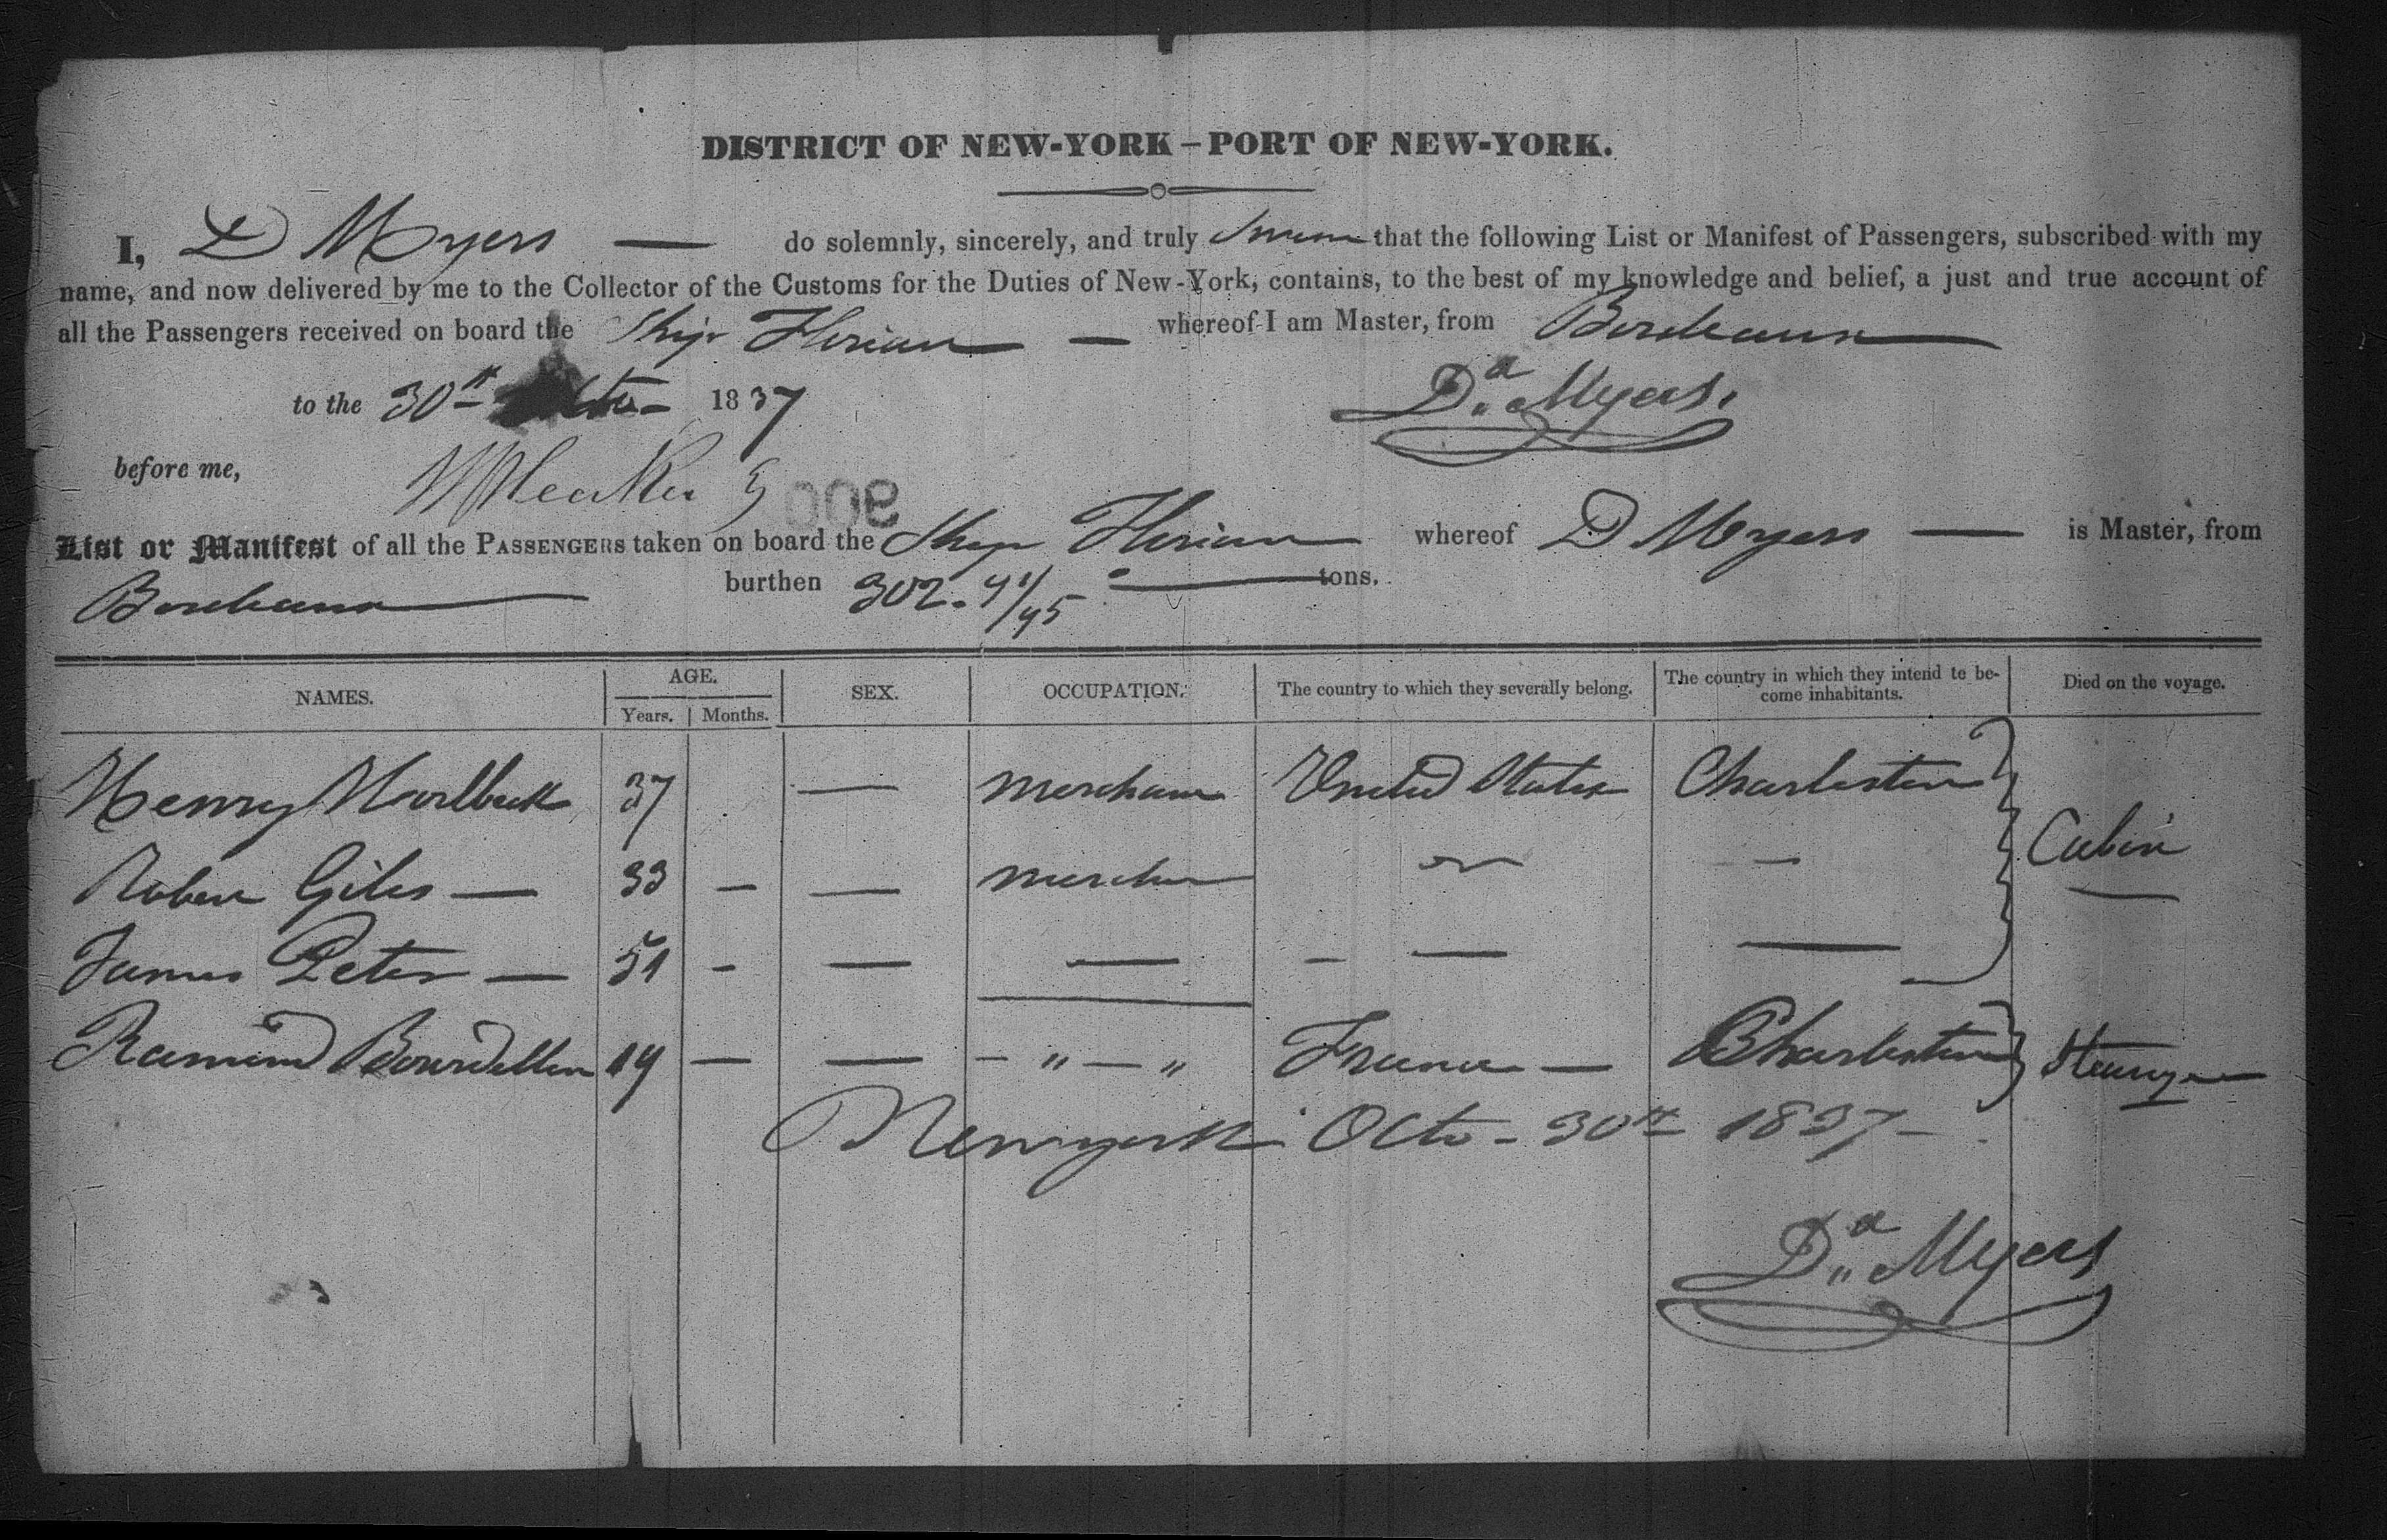 DISTRICT OF NEW-YORK – PORT OF NEW-YORK.
I, D Myers — do solemnly, sincerely, and truly swear that the following List or Manifest of Passengers, subscribed with my
name, and now delivered by me to the Collector of the Customs for the Duties of New-York, contains, to the best of my knowledge and belief, a just and true account of
all the Passengers received on board the Ship Florian — whereof I am Master, from Bordeaux
to the 30th Octo- 1837
Da Myers.
before me,
900
List or Manifest of all the PASSENGERS taken on board the Ship Florian whereof D Myers — is Master, from
Bordeaux burthen 302. 91/95 tons.
NAMES. AGE. SEX. OCCUPATION. The country to which they severally belong. The country in which they intend to be-
come inhabitants. Died on the voyage.
Years. Months.
Henry 37 — merchant United States Charleston
Cabin
Robert Giles — 33 — — merchant — —
James Peter — 51 — — — — — —
Bourdillon 19 — — — " — " France — Charleston Steerage
Newyork Octo - 30th 1837 —
Da Myers